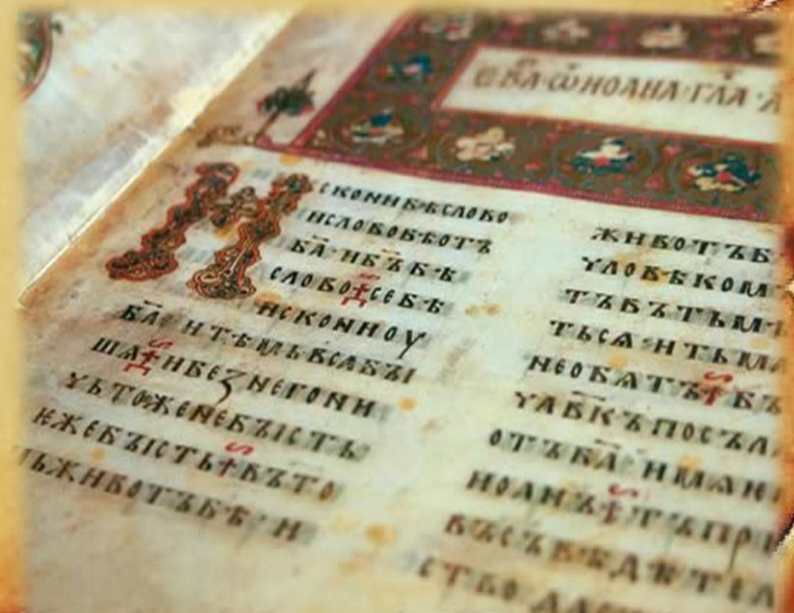 ЕВА҃·Ѿ ИОАНА·ГЛА҃·А
ИСКОНИБѢСЛОВО
ИСЛОВОБѢОТЪ
БА҃·ИБЪ҃БѢ
СЛОВО☩СЕБѢ
ИСКОНИОУ
БА҃·ИТѢМЬВСАБЪІ
ШѦ☩ИБЕꙀНЕГОНИ
ЧЬТОЖЕНЕБЪІСТЬ
ѤЖЕБЪІСТЬ☩ВЪТО
МЬЖИВОТЪБѢ·И
ЖИВОТЪБ
ЧЛОВѢКОМ
ТЪВЪТЬМ
ТЬСѦ·ИТЬМА
НЕОБѦТЪ☩БЪ
ЧЛВ҃КЪПОСЪЛА
ОТЪБА҃·ИМѦ
ИОАНЪ☩ТЪПРИ
ВЪСЪВѢДѢТЕЛ
СТВО ДА